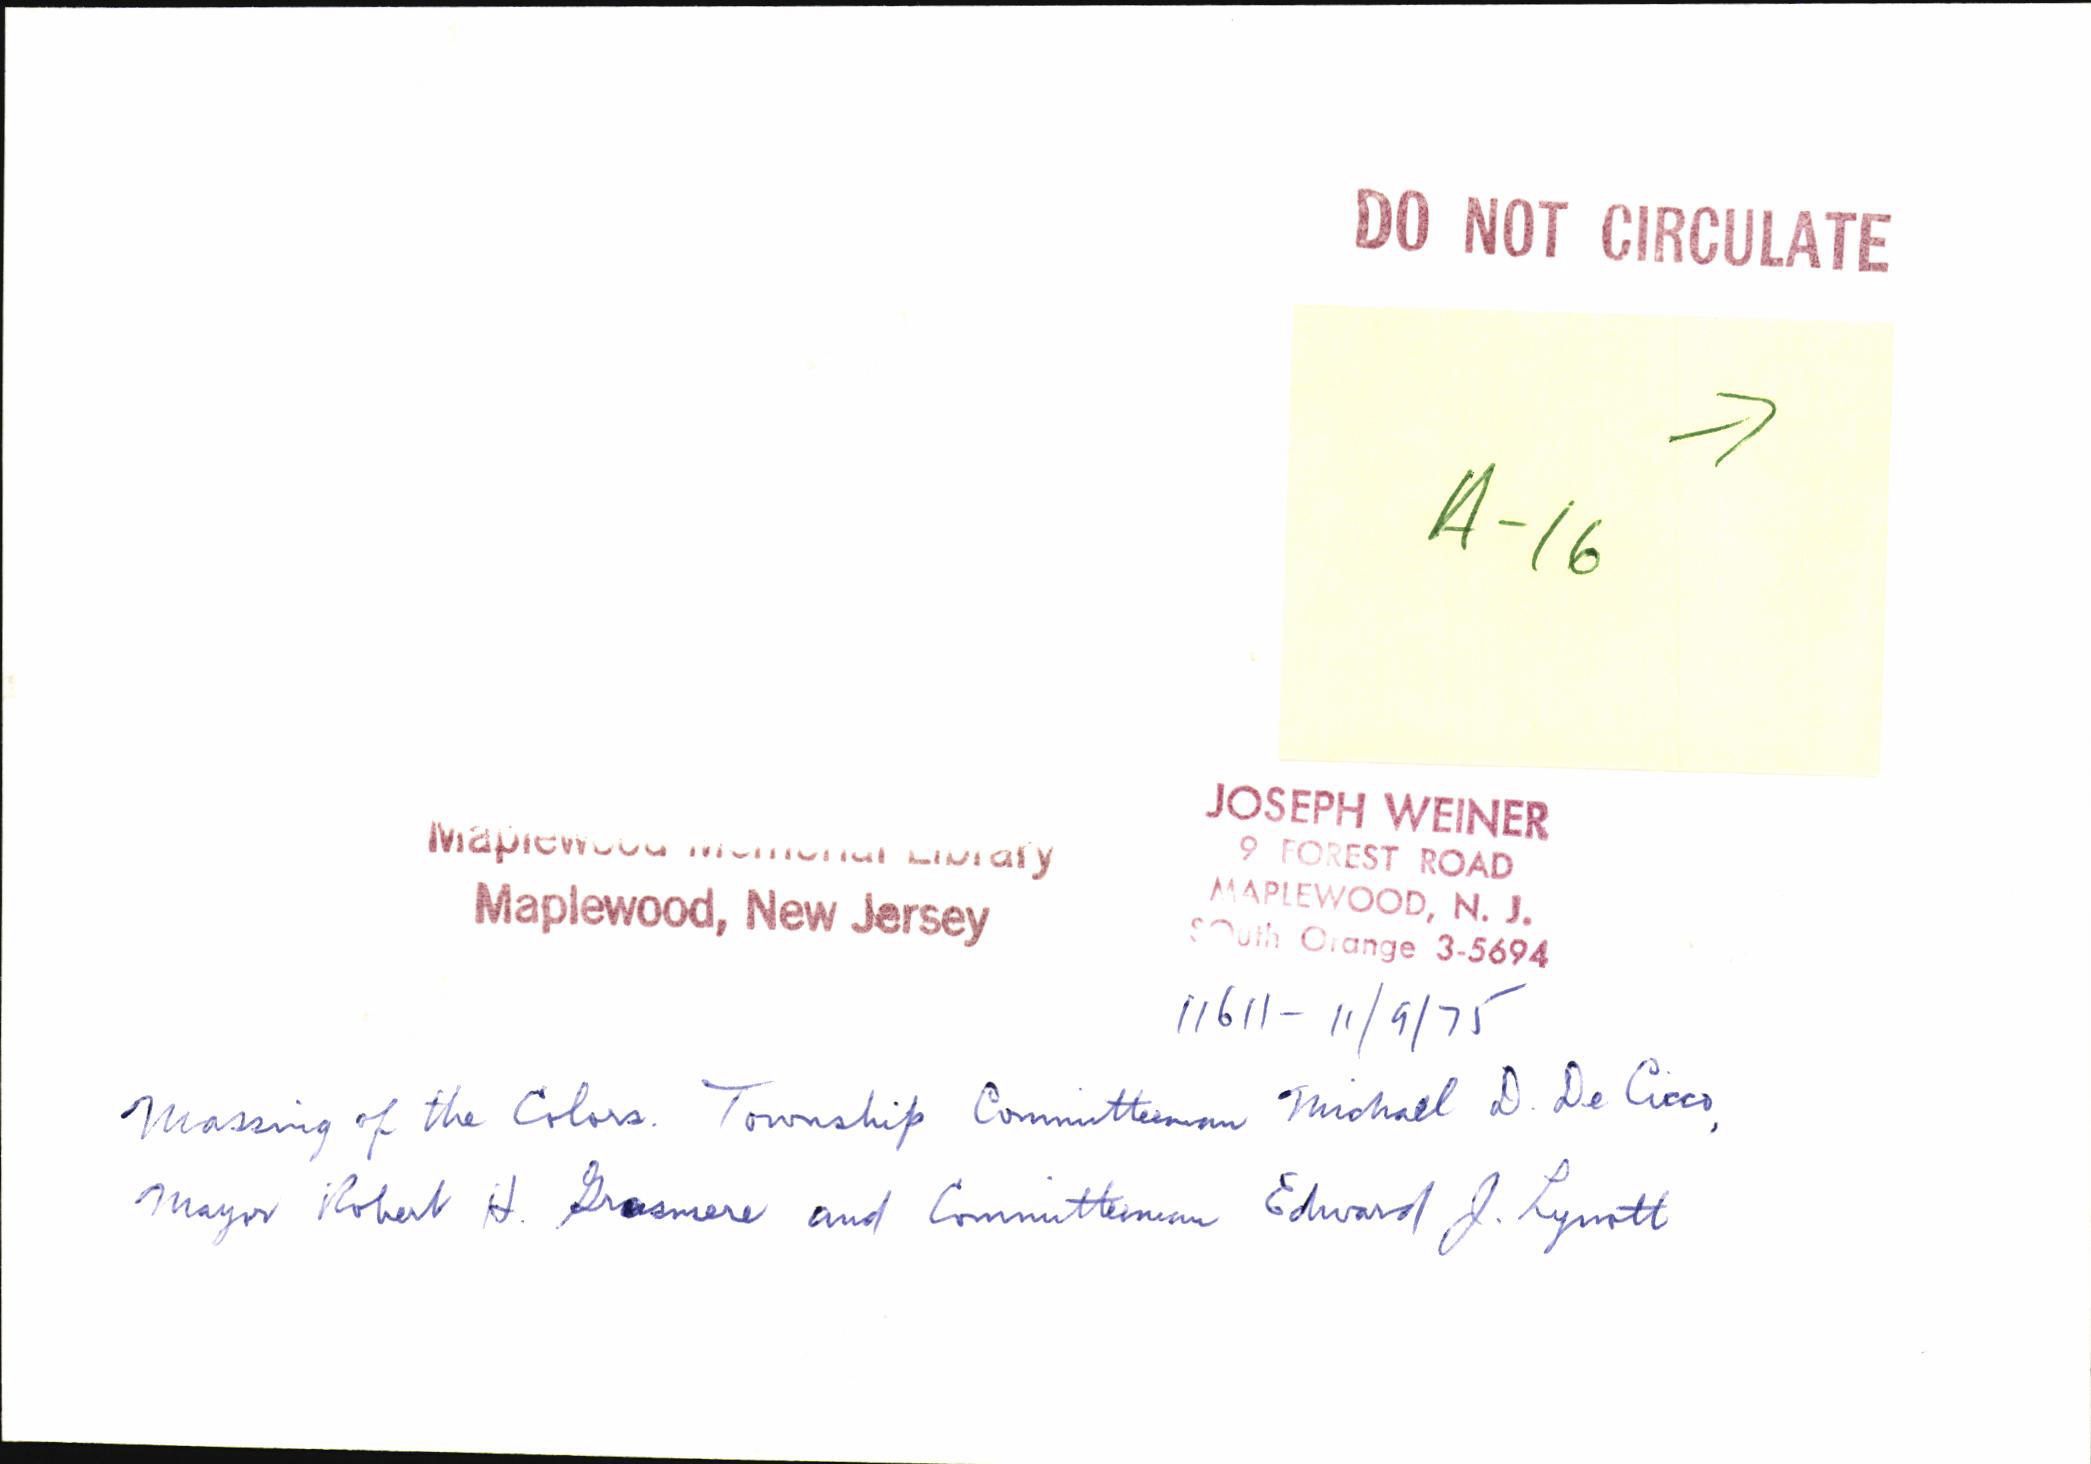 DO NOT CIRCULATE
A-16
Maplewood Memorial Library
Maplewood, New Jersey
JOSEPH WEINER
9 FOREST ROAD
MAPLEWOOD, N. J.
SOuth Orange 3-5694
11611- 11/9/75
Massing of the Colors. Township Committeeman Michael D. De Cicco,
Mayor Robert H. Grasmere and Committeeman Edward J. Lynott